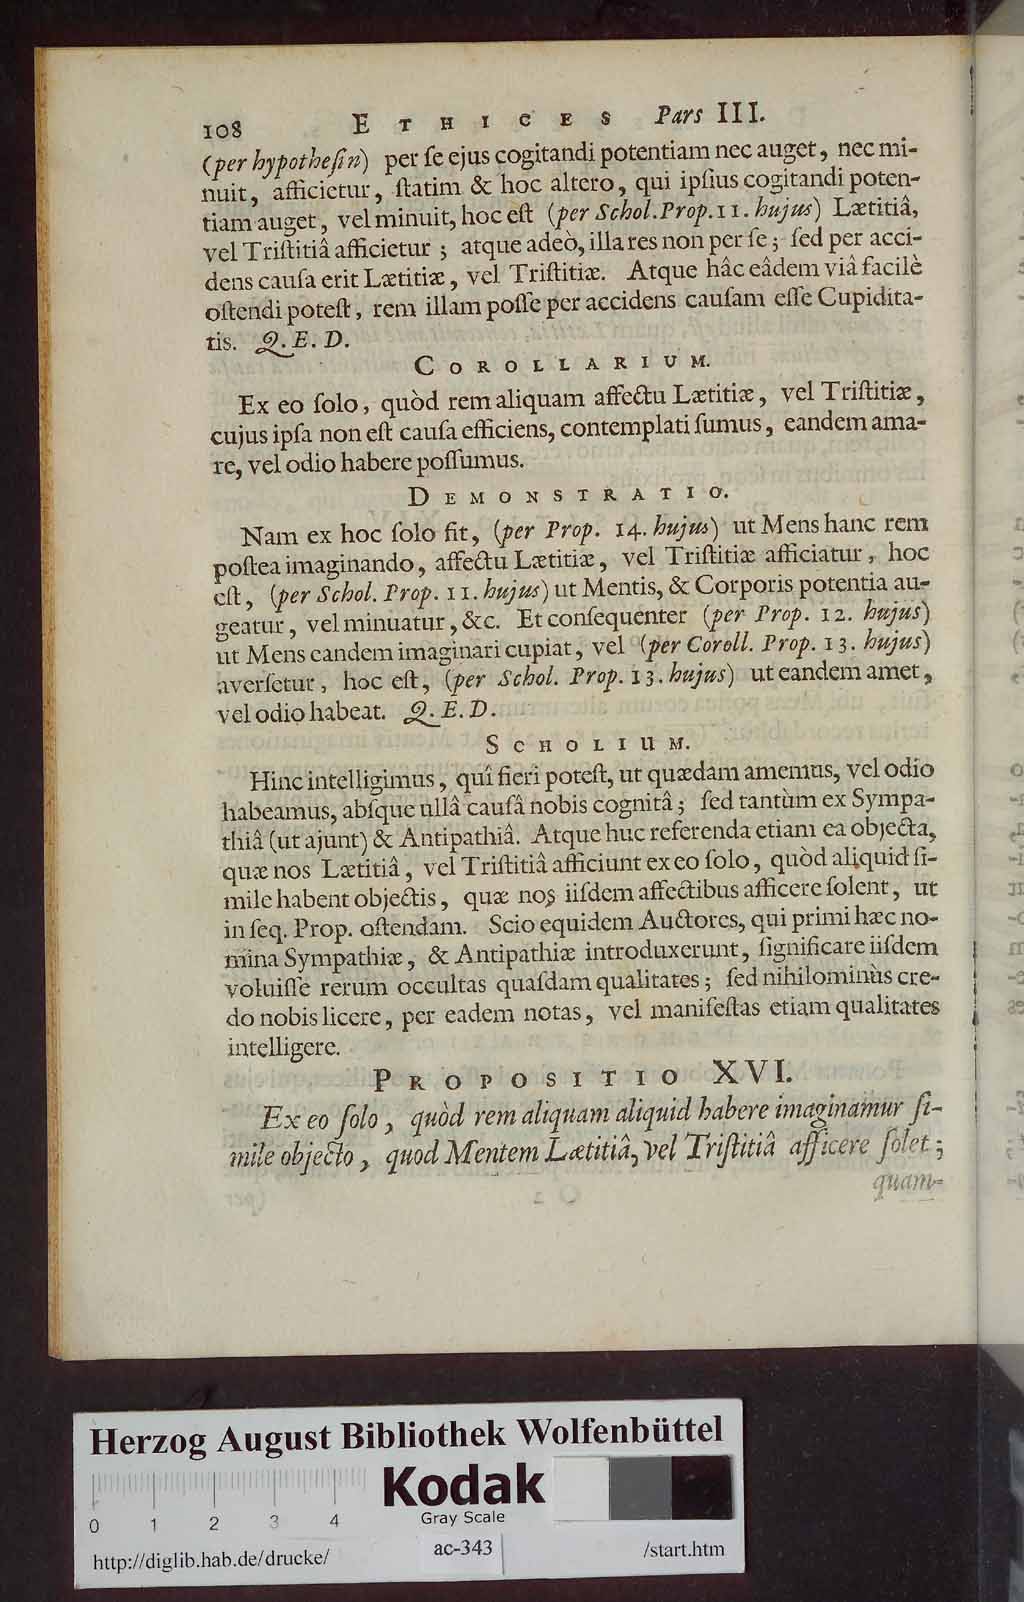 108 ETHICES Pars III.
(per hypotheſin) per ſe ejus cogitandi potentiam nec auget, nec mi-
nuit, afficietur, ſtatim & hoc altero, qui ipſius cogitandi poten-
tiam auget, vel minuit, hoc eſt (per Schol. Prop. 11. hujus) Lætitiâ,
vel Triſtitiâ afficietur; atque adeò, illa res non per ſe; ſed per acci-
dens cauſa erit Lætitiæ, vel Triſtitiæ. Atque hâc eâdem viâ facilè
oſtendi poteſt, rem illam poſſe per accidens cauſam eſſe Cupidita-
tis. Q. E. D.
COROLLARIUM.
Ex eo ſolo, quòd rem aliquam affectu Lætitiæ, vel Triſtitiæ,
cujus ipſa non eſt cauſa efficiens, contemplati ſumus, eandem ama-
re, vel odio habere poſſumus.
DEMONSTRATIO.
Nam ex hoc ſolo fit, (per Prop. 14. hujus) ut Mens hanc rem
poſtea imaginando, affectu Lætitiæ, vel Triſtitiæ afficiatur, hoc
eſt, (per Schol. Prop. 11. hujus) ut Mentis, & Corporis potentia au-
geatur, vel minuatur, &c. Et conſequenter (per Prop. 12. hujus)
ut Mens eandem imaginari cupiat, vel (per Coroll. Prop. 13. hujus)
averſetur, hoc eſt, (per Schol. Prop. 13. hujus) ut eandem amet,
vel odio habeat. Q. E. D.
SCHOLIUM.
Hinc intelligimus, quî fieri poteſt, ut quædam amemus, vel odio
habeamus, abſque ullâ cauſâ nobis cognitâ; ſed tantùm ex Sympa-
thiâ (ut ajunt) & Antipathiâ. Atque huc referenda etiam ea objecta,
quæ nos Lætitiâ, vel Triſtitiâ afficiunt ex eo ſolo, quòd aliquid ſi-
mile habent objectis, quæ nos iiſdem affectibus afficere ſolent, ut
in ſeq. Prop. oſtendam. Scio equidem Auctores, qui primi hæc no-
mina Sympathiæ, & Antipathiæ introduxerunt, ſignificare iiſdem
voluiſſe rerum occultas quaſdam qualitates; ſed nihilominùs cre-
do nobis licere, per eadem notas, vel manifeſtas etiam qualitates
intelligere.
PROPOSITIO XVI.
Ex eo ſolo, quòd rem aliquam aliquid habere imaginamur ſi-
mile objecto, quod Mentem Lætitiâ, vel Triſtitiâ afficere ſolet;
quam-
Herzog August Bibliothek Wolfenbüttel
Kodak
Gray Scale
0 1 2 3 4
http://diglib.hab.de/drucke/ ac-343 /start.htm